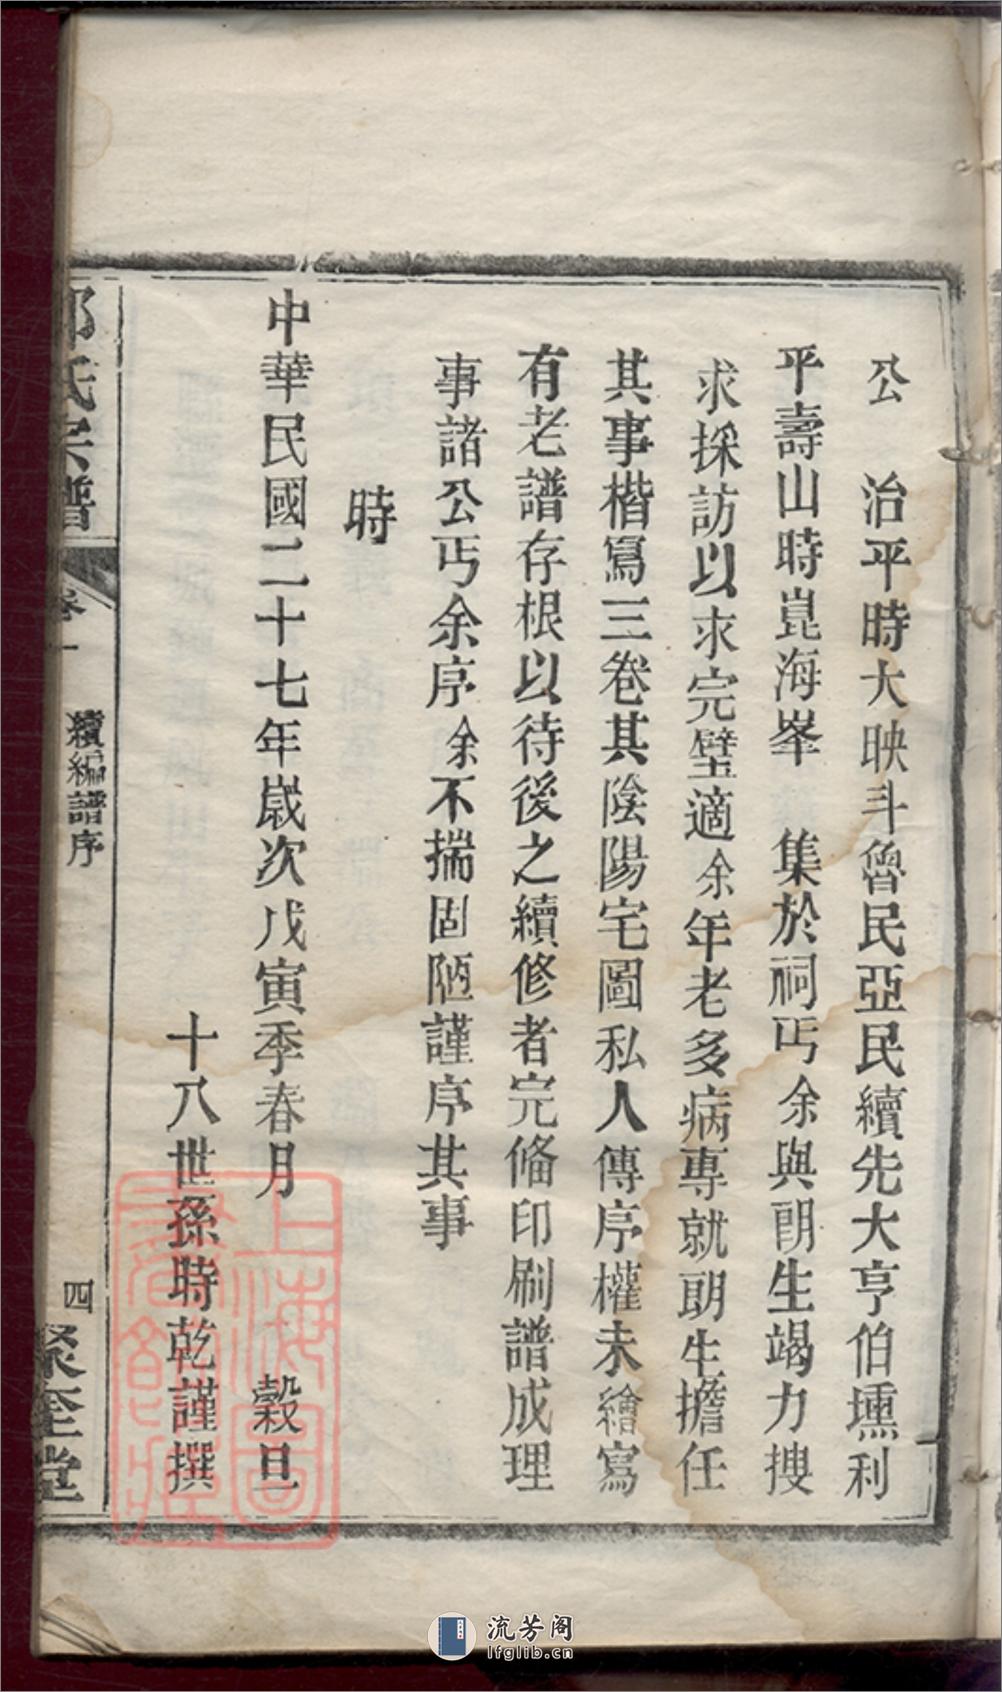 公　治平時大映斗魯民亞民續先大亨伯壎利
平壽山時崑海峯　集於祠丐余與朗生竭力搜
求採訪以求完璧適余年老多病專就朗生擔任
其事楷寫三卷其陰陽宅圖私人傳序權未繪寫
有老譜存根以待後之續修者完俻印刷譜成理
事諸公丐余序余不揣固陋謹序其事
時
中華民國二十七年歲次戊寅季春月　穀旦
十八世孫時乾謹撰
氏宗譜
卷一
續編譜序
四
聚奎堂
上海圖書館藏
流芳阁
lfglib.cn